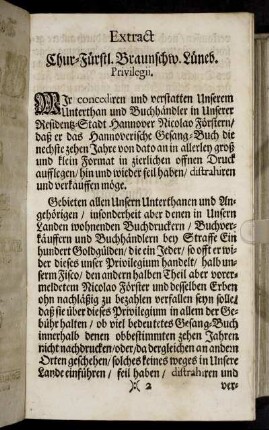 Extract
Chur-Fürstl. Braunschw. Lüneb.
Privilegii.
WIr concediren und verstatten Unserem
Unterthan und Buchhändler in Unserer
Residentz-Stadt Hannover Nicolao Förstern/
daß er das Hannoverische Gesang-Buch die
nechste zehen Jahre von dato an in allerley groß
und klein Format in zierlichen offnen Druck
aufflegen/ hin und wieder feil haben/ distrahiren
und verkauffen möge.
Gebieten allen Unsern Unterthanen und An-
gehörigen / insonderheit aber denen in Unsern
Landen wohnenden Buchdruckern / Buchver-
käuffern und Buchhändlern bey Straffe Ein
hundert Goldgülden/ die ein Jeder/ so offt er wi-
der dieses unser Privilegium handelt/ halb un-
serm Fisco/ den andern halben Theil aber vorer-
meldetem Nicolao Förster und desselben Erben
ohn nachläßig zu bezahlen verfallen seyn solle/
daß sie über dieses Privilegium in allem der Ge-
bühr halten / ob viel bedeutetes Gesang-Buch
innerhalb denen obbestimmten zehen Jahren
nicht nachdrucken/oder/da dergleichen an andern
Orten geschehen/ solches keines weges in Unsere
Lande einführen / feil haben / distrahiren und
)( 2 ver-